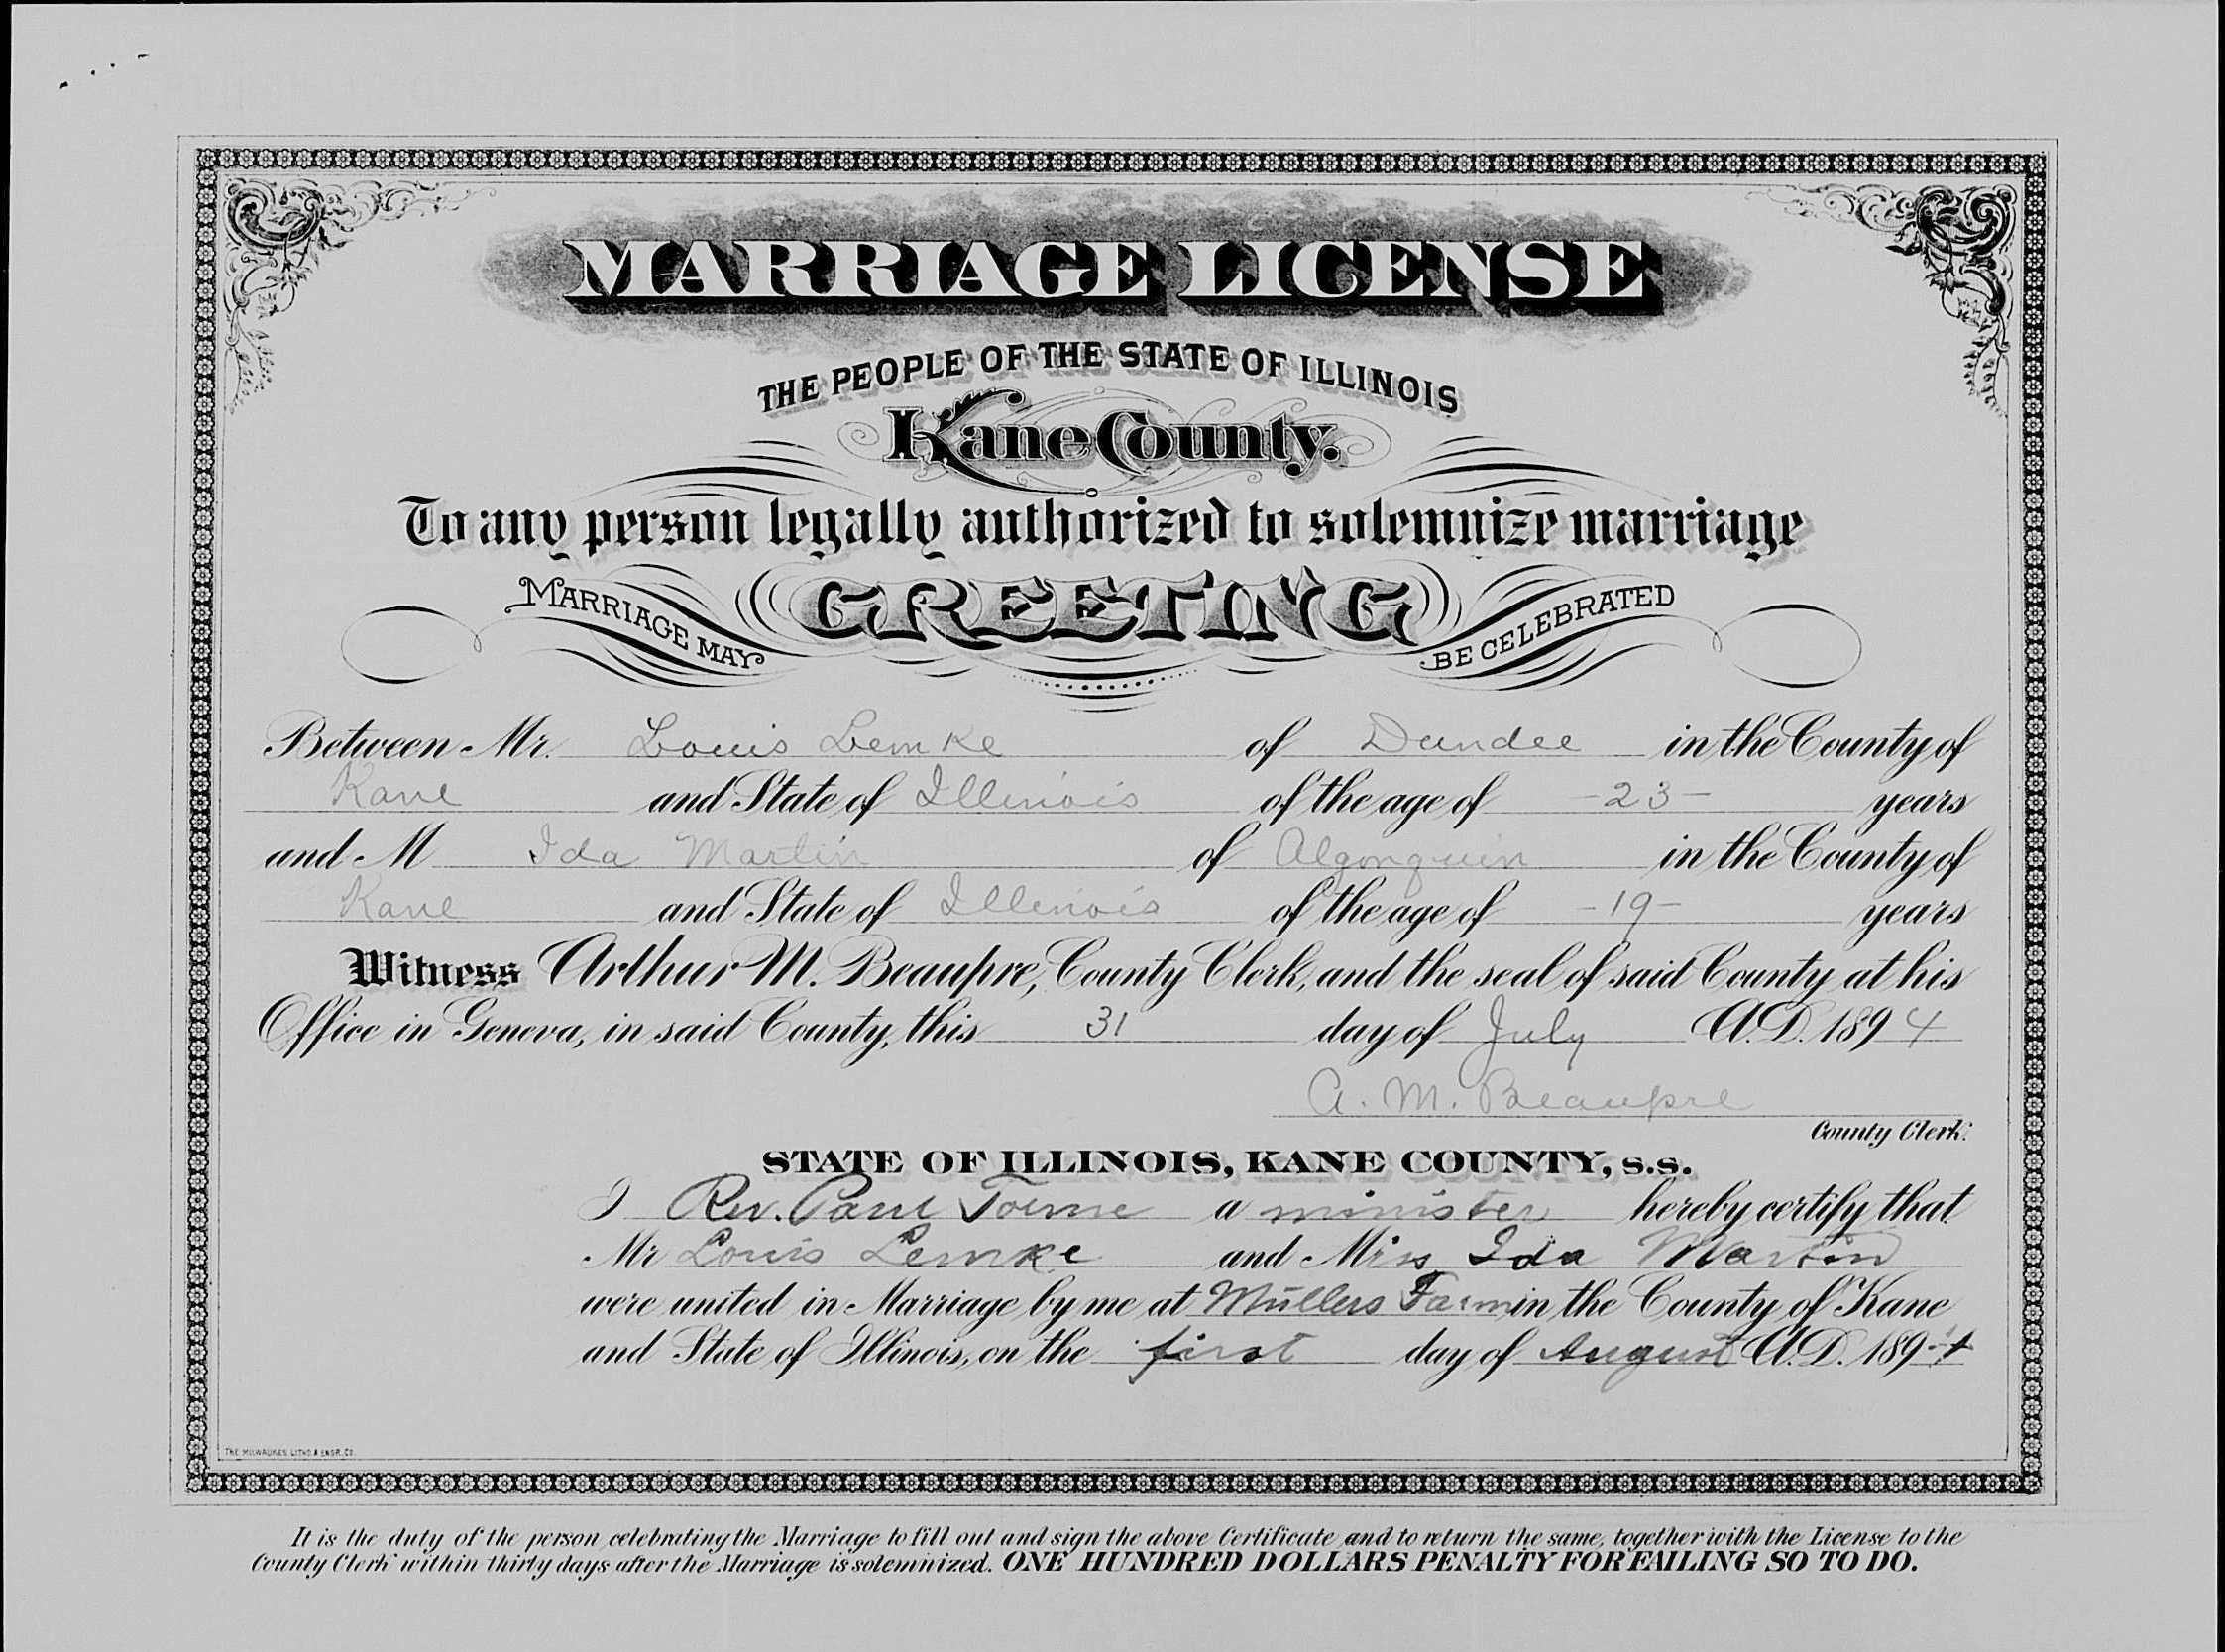 MARRIAGE LICENSE
THE PEOPLE OF THE STATE OF ILLINOIS
Kane County.
To any person legally authorized to solemnize marriage
GREETING
MARRIAGE MAY BE CELEBRATED
Between Mr. Louis Lemke of Dundee in the County of
Kane and State of Illinois of the age of -23- years
and M Ida Martin of Algonquin in the County of
Kane and State of Illinois of the age of -19- years
Witness Arthur M. Beaupre, County Clerk, and the seal of said County at his
Office in Geneva, in said County, this 31 day of July A.D. 1894
A. M. Beaupre
County Clerk.
STATE OF ILLINOIS, KANE COUNTY, s.s.
I Rev. Paul a minister hereby certify that
Mr Louis Lemke and Miss Ida Martin
were united in Marriage by me at Müllers Farm in the County of Kane
and State of Illinois, on the first day of August A.D. 1894
THE MILWAUKEE LITHO & ENGR. CO.
It is the duty of the person celebrating the Marriage to fill out and sign the above Certificate and to return the same, together with the License to the
County Clerk within thirty days after the Marriage is solemnized. ONE HUNDRED DOLLARS PENALTY FOR FAILING SO TO DO.